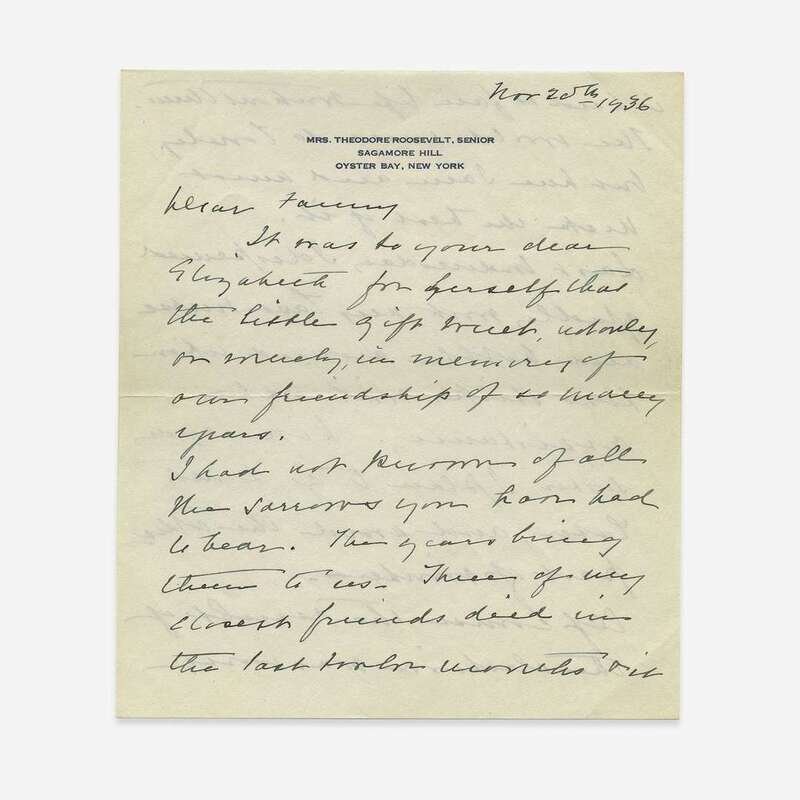 Nov 20th 1936
MRS. THEODORE ROOSEVELT, SENIOR
SAGAMORE HILL
OYSTER BAY, NEW YORK
Dear Fanny
It was to your dear
Elizabeth for herself that
the little gift went, not only,
or merely, in memory of
our friendship of so many
years.
I had not known of all
the sorrows you have had
to bear. The years bring
them to us - Three of my
closest friends died in
the last twelve months & it